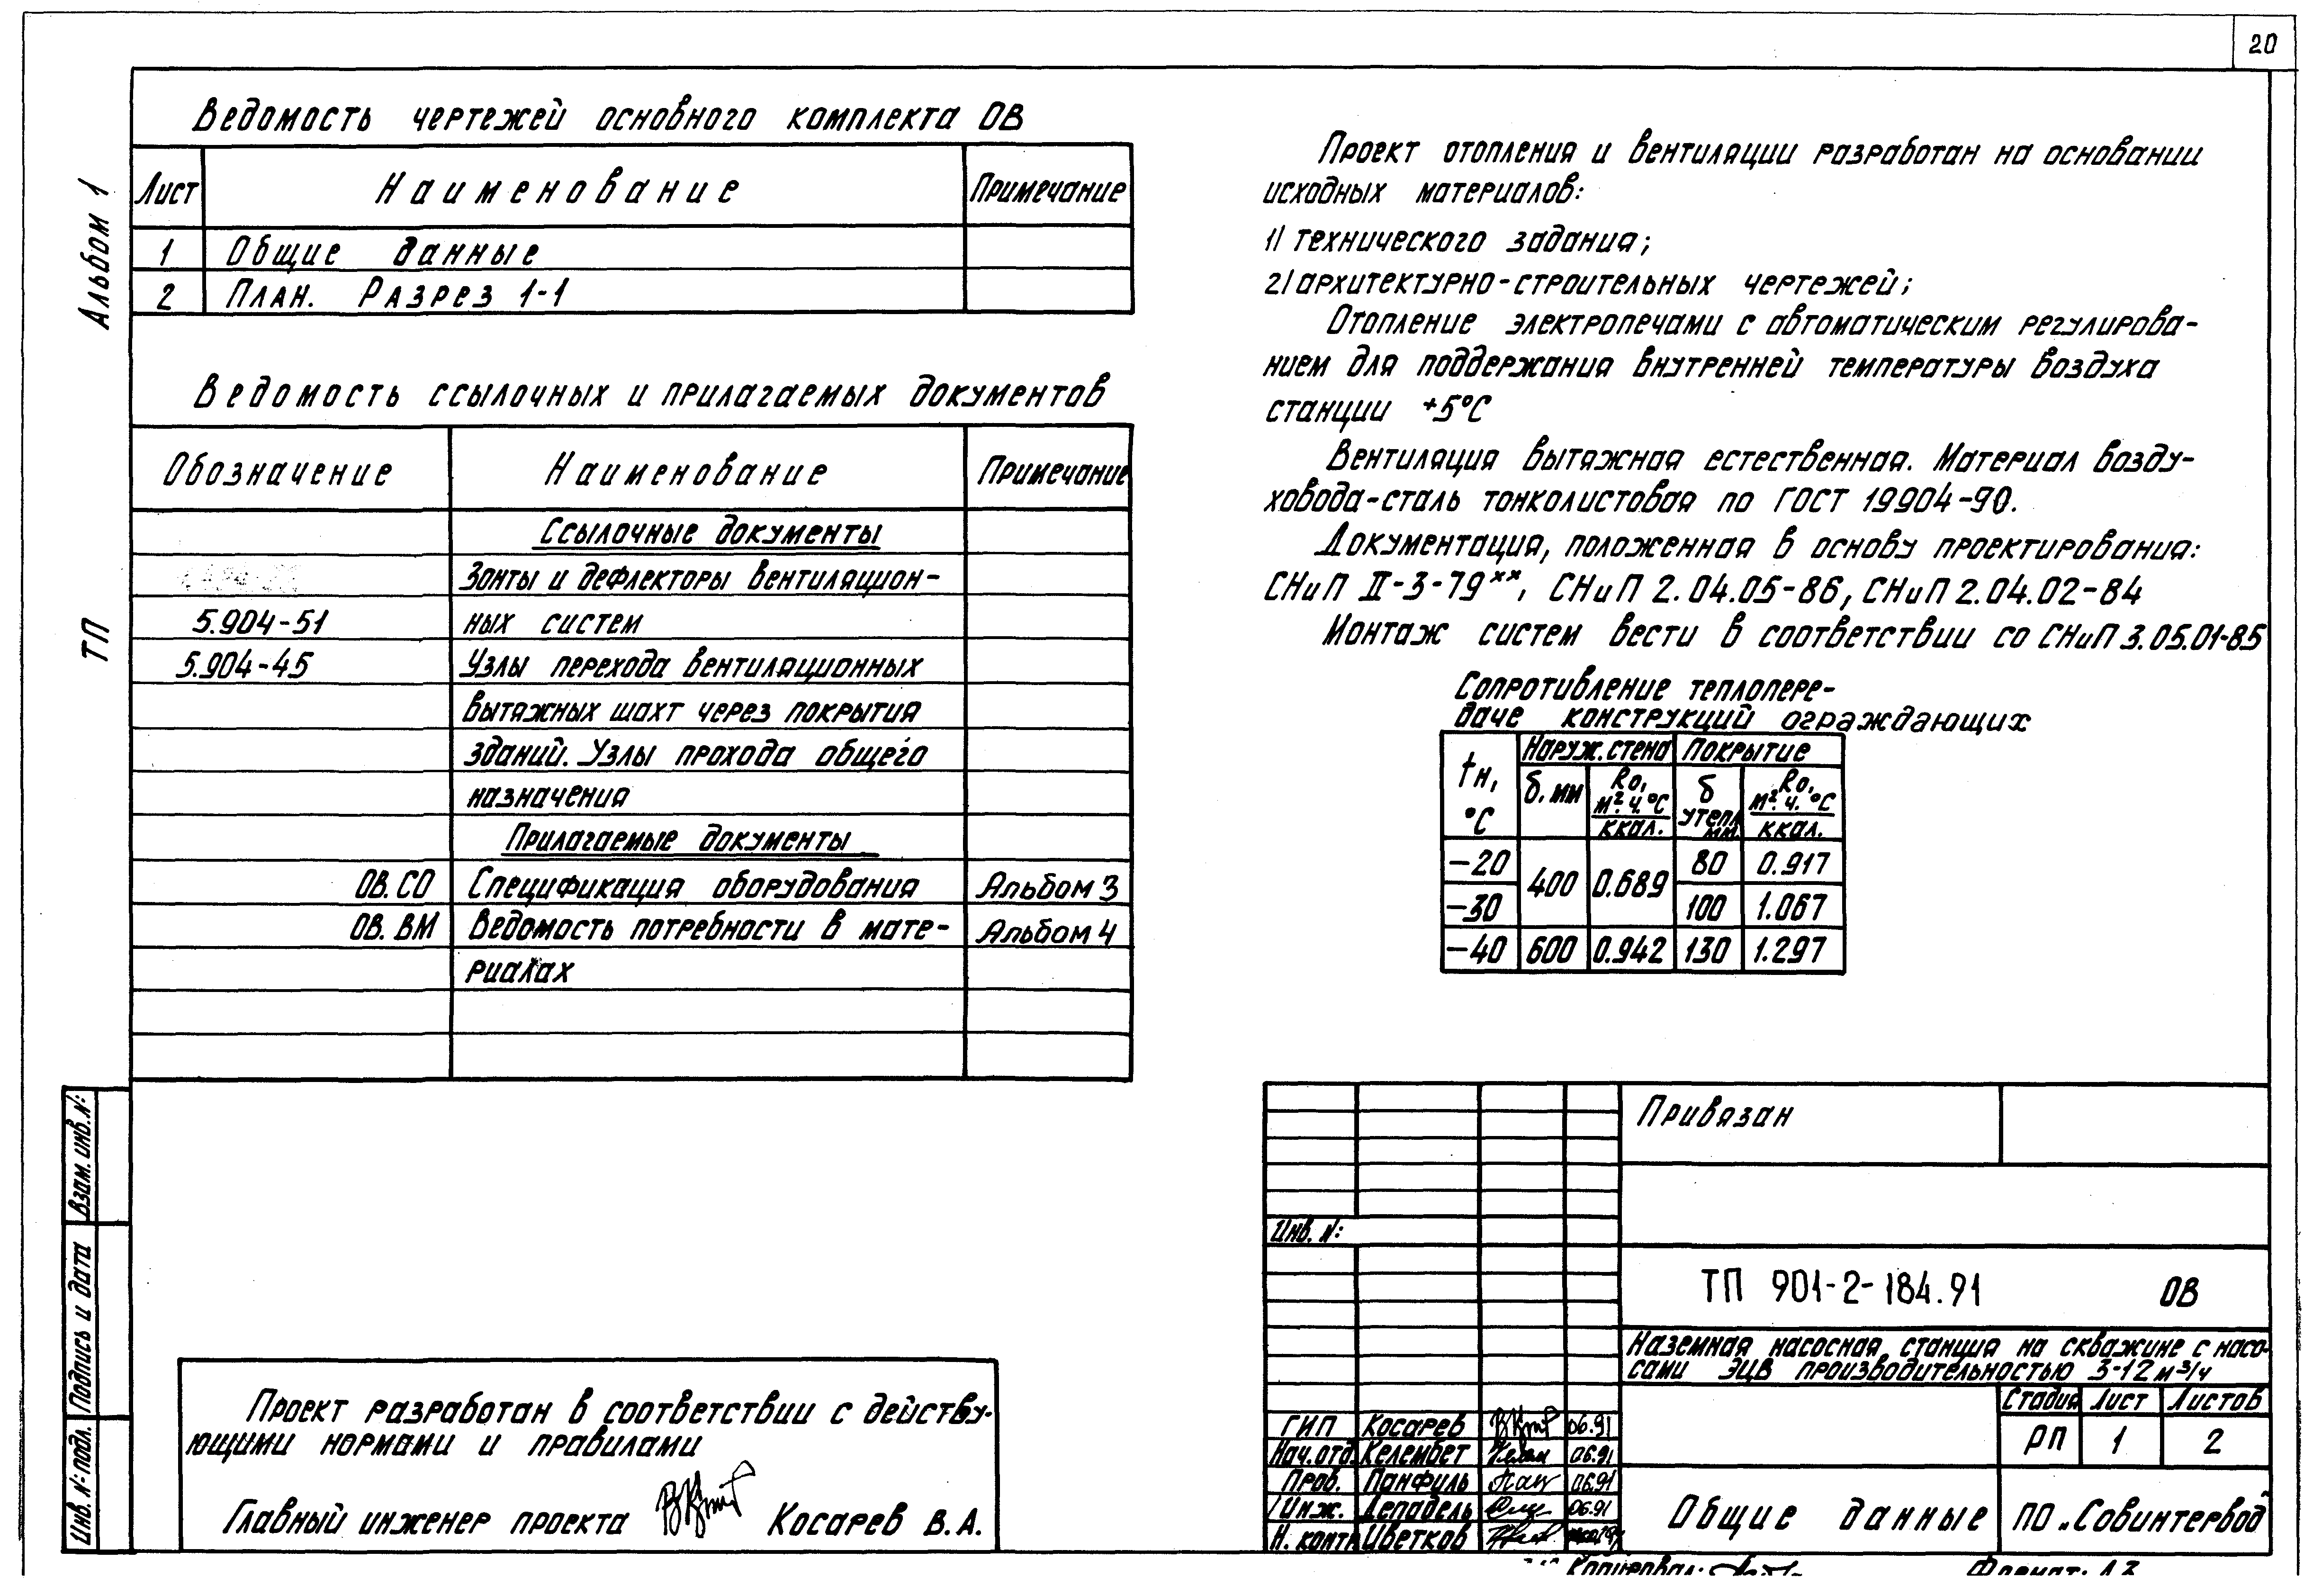 20
Альбом 1
ТП
Ведомость чертежей основного комплекта ОВ
Лист Наименование Примечание
1 Общие данные
2 План. Разрез 1-1
Ведомость ссылочных и прилагаемых документов
Обозначение Наименование Примечание
Ссылочные документы
Зонты и дефлекторы вентиляцион-
5.904-51 ных систем
5.904-45 Узлы перехода вентиляционных
вытяжных шахт через покрытия
зданий. Узлы прохода общего
назначения
Прилагаемые документы
ОВ.СО Спецификация оборудования Альбом 3
ОВ.ВМ Ведомость потребности в мате- Альбом 4
риалах
Проект отопления и вентиляции разработан на основании
исходных материалов:
1) технического задания;
2) архитектурно-строительных чертежей;
Отопление электропечами с автоматическим регулирова-
нием для поддержания внутренней температуры воздуха
станции +5°С
Вентиляция вытяжная естественная. Материал возду-
ховода-сталь тонколистовая по ГОСТ 19904-90.
Документация, положенная в основу проектирования:
СНиП II-3-79**, СНиП 2.04.05-86, СНиП 2.04.02-84
Монтаж систем вести в соответствии со СНиП 3.05.01-85
Сопротивление теплопере-
даче конструкций ограждающих
tн, °С Наруж. стена Покрытие
б. мм Rо, м².ч.°С/ккал. б утепл. мм. Rо, м².ч.°С/ккал.
-20 400 0.689 80 0.917
-30 100 1.067
-40 600 0.942 130 1.297
Взам. инв. №:
Подпись и дата
Инв. № подл.
Проект разработан в соответствии с действу-
ющими нормами и правилами
Главный инженер проекта Косарев В.А.
Привязан
Инв. №:
ТП 901-2-184.91 ОВ
Наземная насосная станция на скважине с насо-
сами ЭЦВ производительностью 3-12 м³/ч
Стадия Лист Листов
РП 1 2
ГИП Косарев 06.91
Нач.отд. Келембет 06.91
Пров. Панфуль 06.91
Инж. Депадель 06.91
Н. контр Цветков
Общие данные
ПО „Совинтервод"
Копировал:
Формат: А3